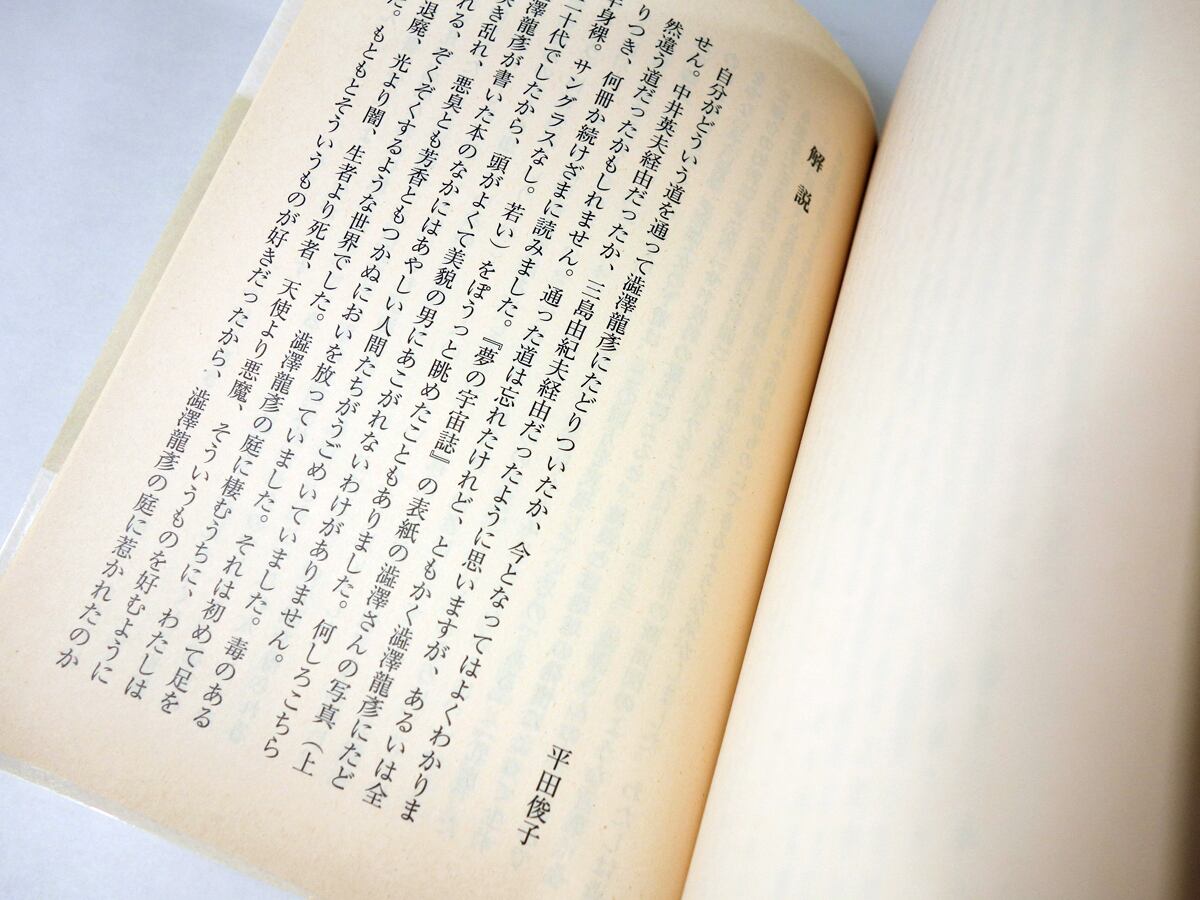 解説
平田俊子
自分がどういう道を通って澁澤龍彥にたどりついたか、今となってはよくわかりま
せん。中井英夫経由だったか、三島由紀夫経由だったように思いますが、あるいは全
然違う道だったかもしれません。通った道は忘れたけれど、ともかく澁澤龍彥にたど
りつき、何冊か続けざまに読みました。『夢の宇宙誌』の表紙の澁澤さんの写真（上
半身裸。サングラスなし。若い）をぼうっと眺めたこともありました。何しろこちら
二十代でしたから、頭がよくて美貌の男にあこがれないわけがありません。
澤龍彥が書いた本のなかにはあやしい人間たちがうごめいていました。毒のある
咲き乱れ、悪臭とも芳香ともつかぬにおいを放っていました。それは初めて足を
れる、ぞくぞくするような世界でした。澁澤龍彥の庭に棲むうちに、わたしは
退廃、光より闇、生者より死者、天使より悪魔、そういうものを好むように
た。もともとそういうものが好きだったから、澁澤龍彥の庭に惹かれたのか